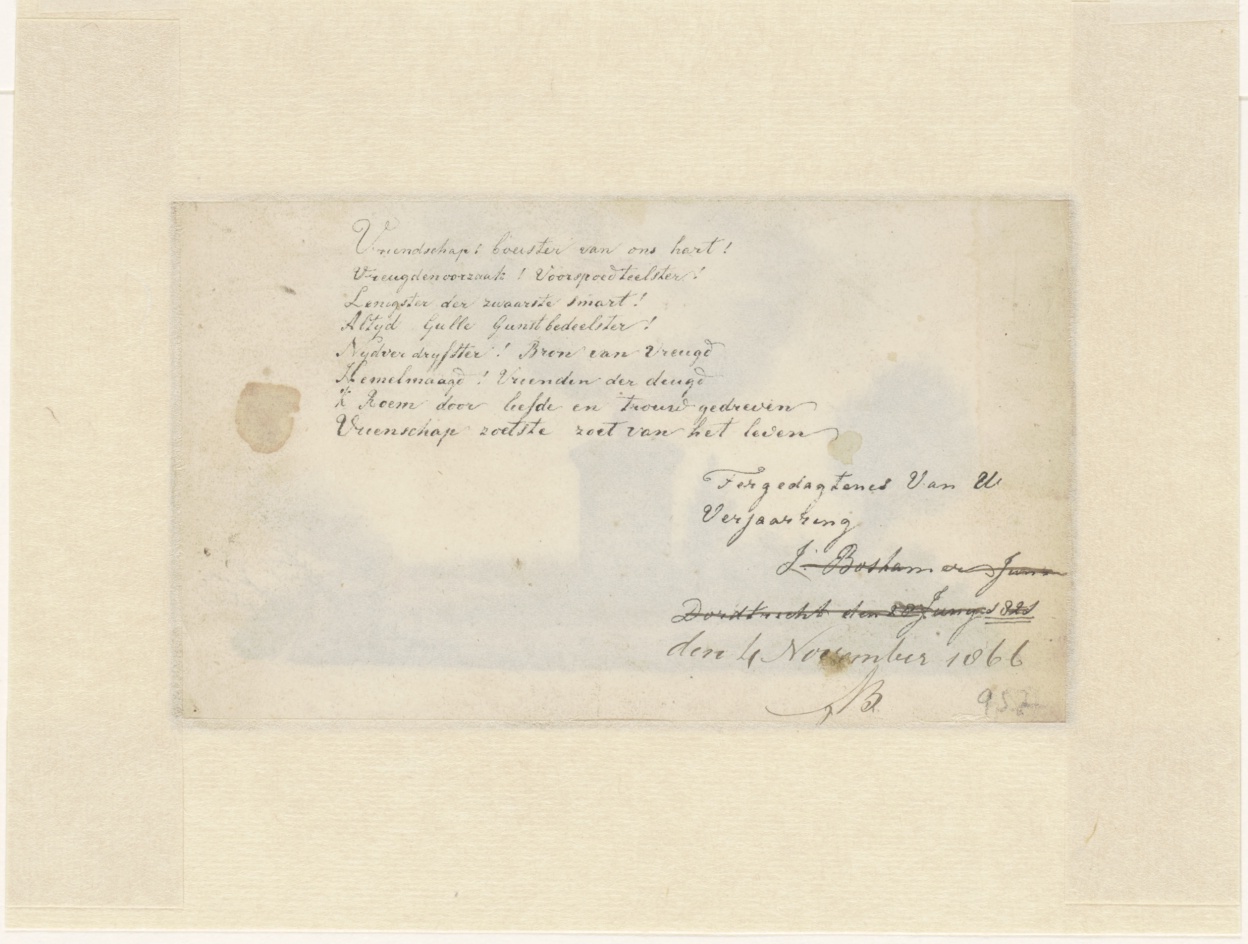 Vriendschap! boeister van ons hart!
Vreugdenoorzaak! Voorspoedteelster!
Lenigster der zwaarste smart!
Altyd Gulle Gunstbedeelster!
Nydverdryfster! Bron van Vreugd
Hemelmaagd! Vrienden der deugd
'k Roem door liefde en trouw gedreven
Vrienschap zoetste zoet van het leven
Tergedagtenes Van U
Verjaarring
J. Boshamer Junior
Dordtrecht den 20 Juny 1821
den 4 November 1866
JB